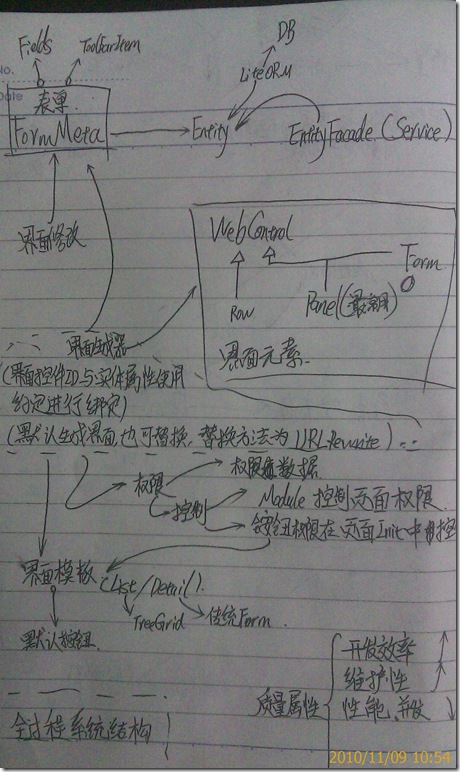 No.
Date
Fields
ToolbarItem
DB
LiteORM
表单
FormMeta
Entity
EntityFacade (Service)
界面修改
WebControl
Form
Row
Panel(最常用)
界面元素.
界面生成器
(界面控件ID与实体属性使用
约定进行绑定)
(默认生成界面,也可替换,替换方法为URLRewrite)
权限
权限数据
控制
Module 控制页面权限.
按钮权限在页面Init中
界面模板
List/Detail
TreeGrid
传统Form.
默认按钮
质量属性
开发效率
维护性
性能、并发
全过程系统结构
2010/11/09 10:54